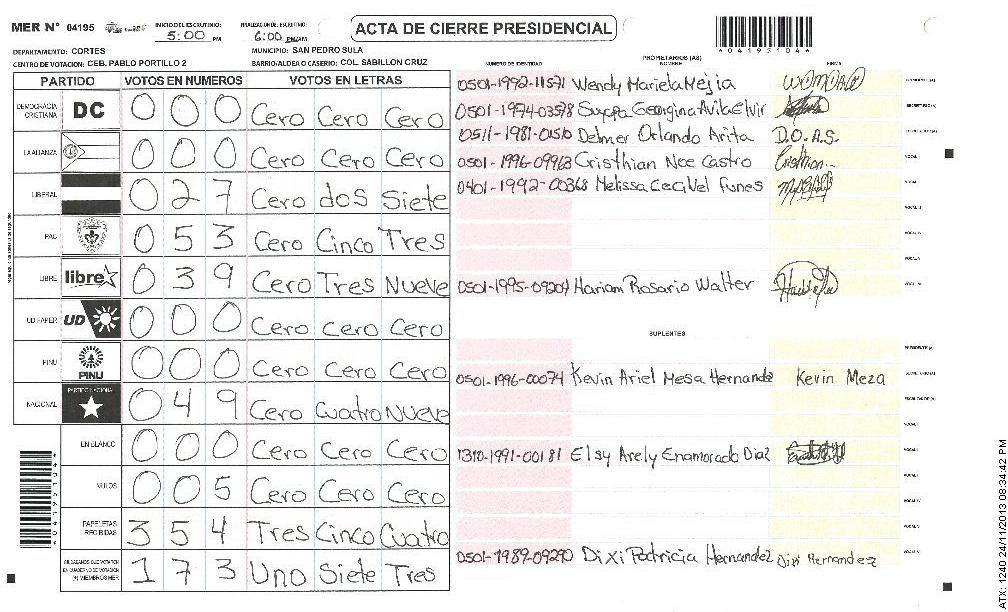 MER N° 04195 INICIO DEL ESCRUTINIO: 5:00 PM FINALIZACION DEL ESCRUTINIO: 6:00 PM/AM ACTA DE CIERRE PRESIDENCIAL
*04195104*
DEPARTAMENTO: CORTES MUNICIPIO: SAN PEDRO SULA
CENTRO DE VOTACION: CEB. PABLO PORTILLO 2 BARRIO/ALDEA O CASERIO: COL. SABILLON CRUZ
NUMERO DE IDENTIDAD PROPIETARIOS (AS) NOMBRE FIRMA
PARTIDO VOTOS EN NUMEROS VOTOS EN LETRAS
DEMOCRACIA CRISTIANA DC 0 0 0 Cero Cero Cero
LA ALIANZA 0 0 0 Cero Cero Cero
LIBERAL 0 2 7 Cero dos Siete
PAC 0 5 3 Cero Cinco Tres
LIBRE libre 0 3 9 Cero Tres Nueve
UD FAPER UD 0 0 0 Cero Cero Cero
PINU PINU 0 0 0 Cero Cero Cero
NACIONAL PARTIDO NACIONAL 0 4 9 Cero Cuatro Nueve
EN BLANCO 0 0 0 Cero Cero Cero
NULOS 0 0 5 Cero Cero Cero
PAPELETAS RECIBIDAS 3 5 4 Tres Cinco Cuatro
CIUDADANOS QUE VOTARON EN CUADERNO DE VOTACION (+) MIEMBROS MER 1 7 3 Uno Siete Tres
0501-1992-11571 Wendy Mariela Mejia
0501-1974-03578 Suyapa Georgina Avila Elvir
0511-1981-01510 Delmer Orlando Arita D.O.A.S.
0501-1996-09963 Cristhian Noe Castro Cristhian
0401-1992-00368 Melissa Cecibel Funes
0501-1995-09204 Mariam Rosario Walter
SUPLENTES
0501-1996-00074 Kevin Ariel Mesa Hernande Kevin Meza
1310-1991-00181 Elsy Arely Enamorado Diaz
0501-1989-09290 Dixi Patricia Hernandez Dixi Hernandez
ATX: 1240 24/11/2013 08:34:42 PM